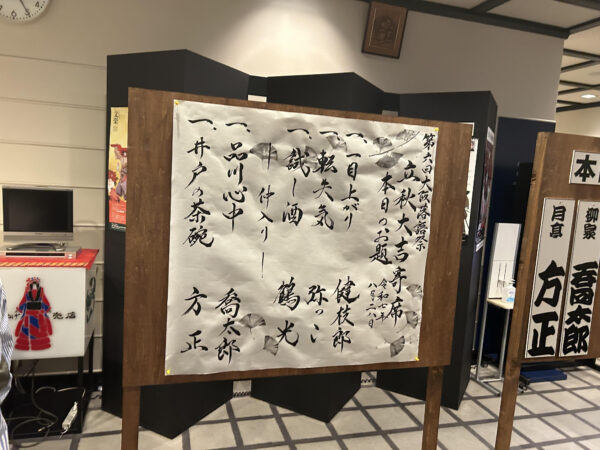 第六回大阪落語祭
立秋大吉寄席
本日のお題
令和七年
八月二八日
一、一目上がり 健枝郎
一、転失気 弥っこ
一、試し酒 鶴光
ー仲入りー
一、品川心中 喬太郎
一、井戸の茶碗 方正
本
柳家
喬太郎
月亭
方正
売店
文楽